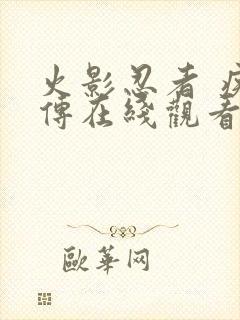 火影忍者 疾
傳在綫觀看
歐華网